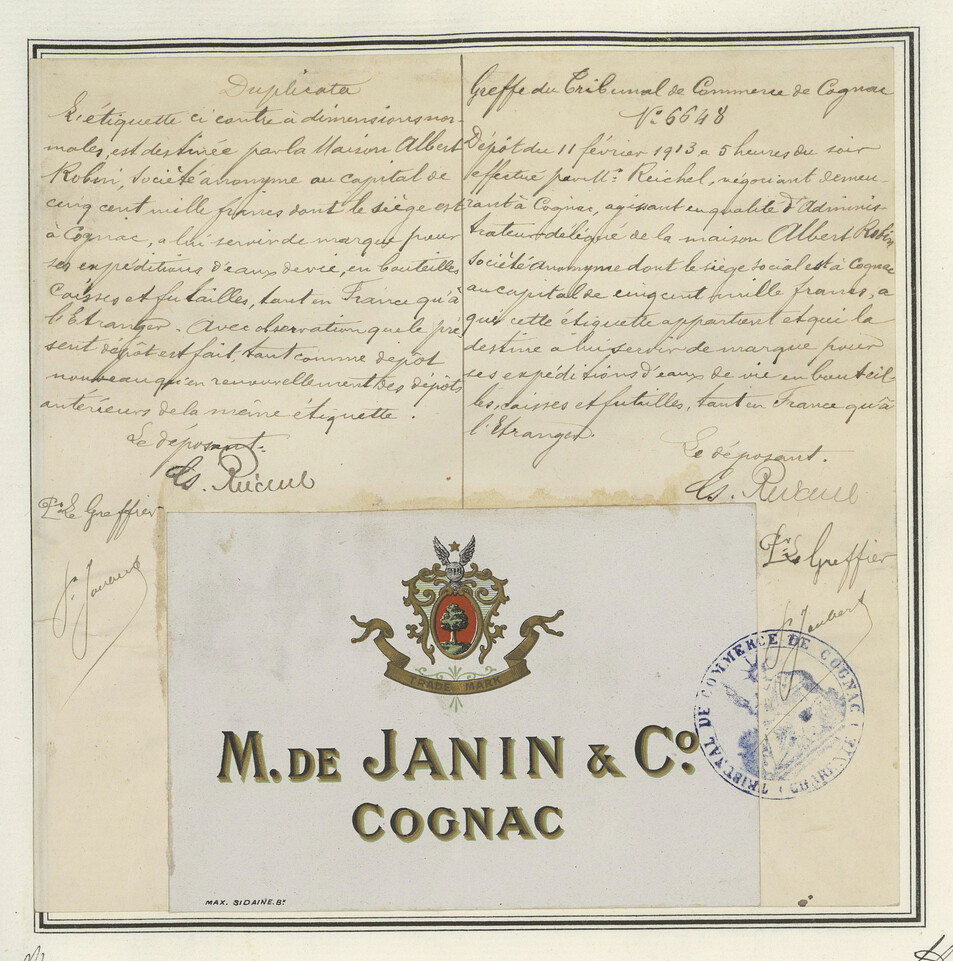 Duplicata
L'étiquette ci contre à dimensions nor-
males, est destinée par la Maison Albert
Robin, Société anonyme au capital de
cinq cent mille francs dont le siège est
à Cognac, a lui servir de marque pour
ses expéditions d'eaux de vie, en bouteilles
Caisses et futailles, tant en France qu'à
l'Etranger. Avec observation que le pré-
sent dépôt est fait, tant comme dépôt
nouveau qu'en renouvellement des dépôts
antérieurs de la même étiquette.
Le déposant.
Pr. Le Greffier
Greffe du Tribunal de Commerce de Cognac
No. 6648
Dépôt du 11 février 1913 a 5 heures du soir
effectué par Mr. Reichel, négociant demeu-
rant à Cognac, agissant en qualité d'Adminis-
trateur délégué de la maison Albert Robin
Société anonyme dont le siège social est à Cognac
au capital de cinq cent mille francs, a
qui cette étiquette appartient et qui la
destine a lui servir de marque pour
ses expéditions d'eaux de vie en bouteil
les, caisses et futailles, tant en France qu'à
l'Etranger.
Le déposant.
Pr. Le Greffier
TRIBUNAL DE COMMERCE DE COGNAC
(CHARENTE)
TRADE MARK
M. DE JANIN & Co.
COGNAC
MAX. SIDAINE. Bx.